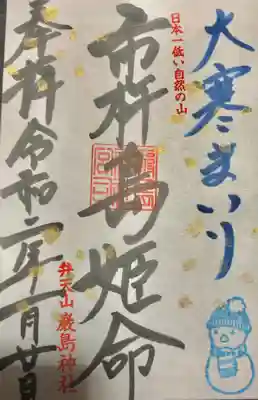 大寒まいり
日本一低い自然の山
市杵島姫命
弁天山 厳島神社
奉拝 令和二年一月廿日